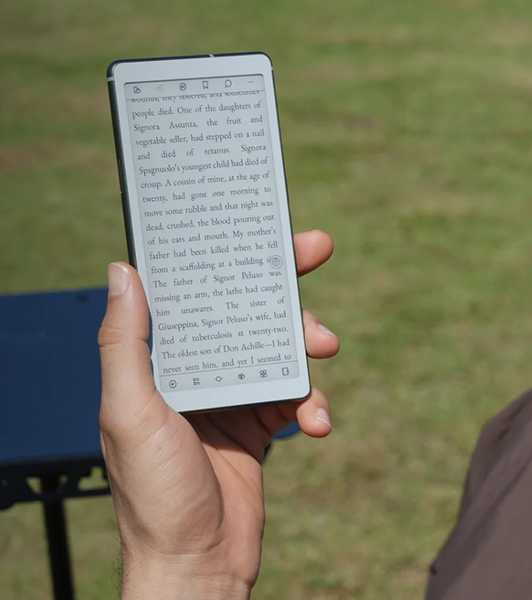 wounds, they festered, and sometimes
people died. One of the daughters of
Signora Assunta, the fruit and
vegetable seller, had stepped on a nail
and died of tetanus. Signora
Spagnuolo's youngest child had died of
croup. A cousin of mine, at the age of
twenty, had gone one morning to
move some rubble and that night was
dead, crushed, the blood pouring out
of his ears and mouth. My mother's
father had been killed when he fell
from a scaffolding at a building
The father of Signor Peluso was
missing an arm, the lathe had caught
him unawares. The sister of
Giuseppina, Signor Peluso's wife, had
died of tuberculosis at twenty-two.
The oldest son of Don Achille—I had
never seen him, and yet I seemed to